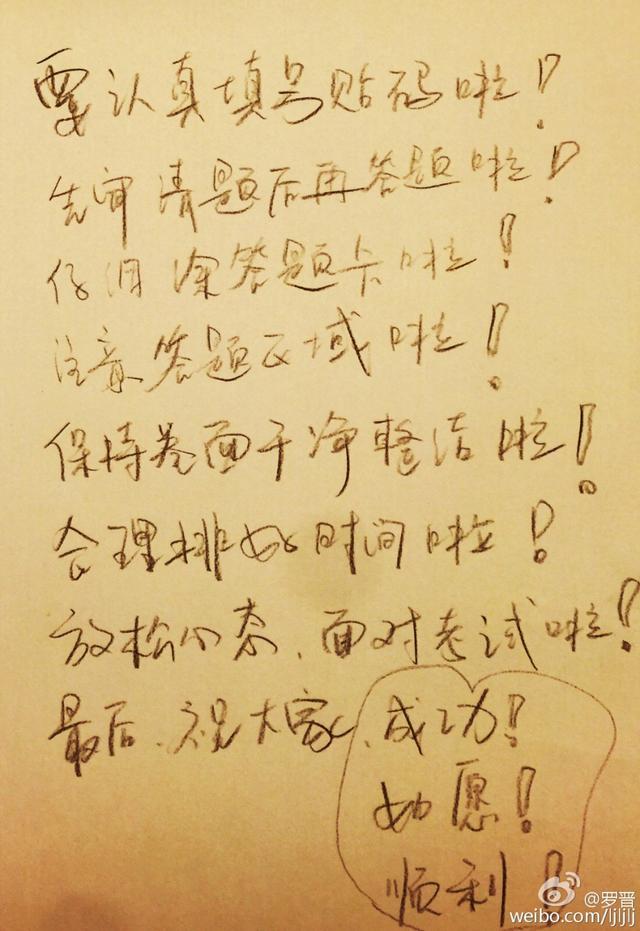 要认真填号贴码啦!
先审清题后再答题啦!
仔细涂答题卡啦!
注意答题区域啦!
保持卷面干净整洁啦!
合理排好时间啦!
放松心态、面对考试啦!
最后、祝大家、成功!
如愿!
顺利!
@罗晋
weibo.com/ljljlj